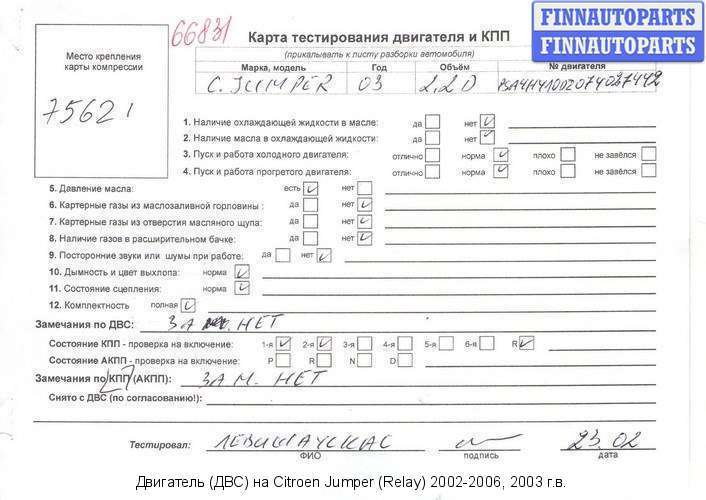 66831
FINNAUTOPARTS
FINNAUTOPARTS
Карта тестирования двигателя и КПП
(прикалывать к листу разборки автомобиля)
Место крепления
карты компрессии
75621
Марка, модель Год Объём № двигателя
C. JUMPER 03 2,2D
1. Наличие охлаждающей жидкости в масле: да нет
2. Наличие масла в охлаждающей жидкости: да нет
3. Пуск и работа холодного двигателя: отлично норма плохо не завёлся
4. Пуск и работа прогретого двигателя: отлично норма плохо не завёлся
5. Давление масла: есть нет
6. Картерные газы из маслозаливной горловины : да нет
7. Картерные газы из отверстия масляного щупа: да нет
8. Наличие газов в расширительном бачке: да нет
9. Посторонние звуки или шумы при работе: да нет
10. Дымность и цвет выхлопа: норма
11. Состояние сцепления: норма
12. Комплектность полная
Замечания по ДВС: ЗАМ. НЕТ
Состояние КПП - проверка на включение: 1-я 2-я 3-я 4-я 5-я 6-я R
Состояние АКПП - проверка на включение: P R N D
Замечания по КПП (АКПП): ЗАМ. НЕТ
Снято с ДВС (по согласованию!):
Тестировал: 23.02
ФИО подпись дата
Двигатель (ДВС) на Citroen Jumper (Relay) 2002-2006, 2003 г.в.